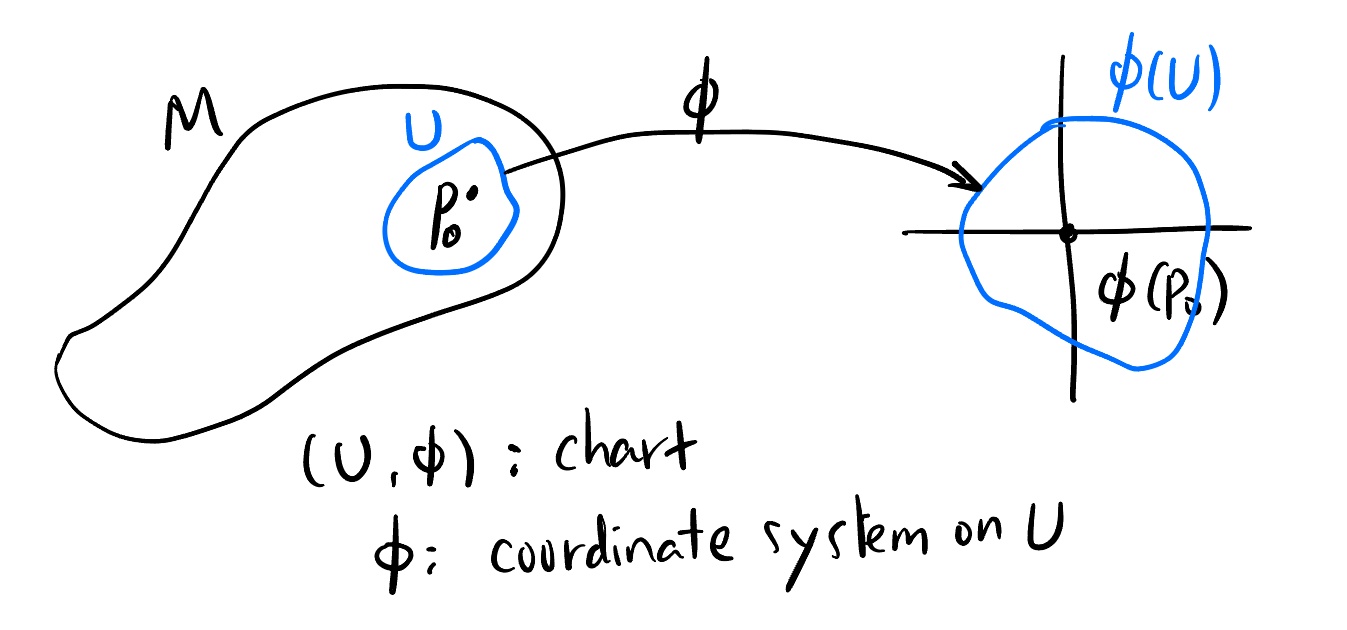 M
U
p₀
ϕ
ϕ(U)
ϕ(p₀)
(U, ϕ) : chart
ϕ: coordinate system on U